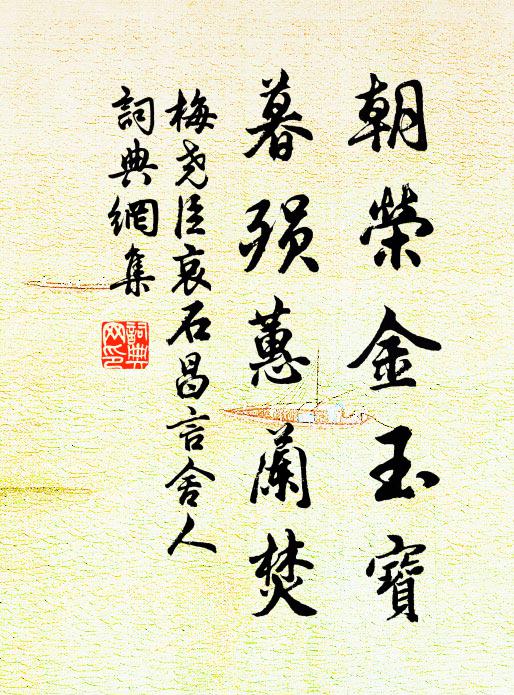 朝榮金玉寶
暮殞蕙蘭焚
梅尧臣哀石昌言舍人
詞典網集
詞典網印